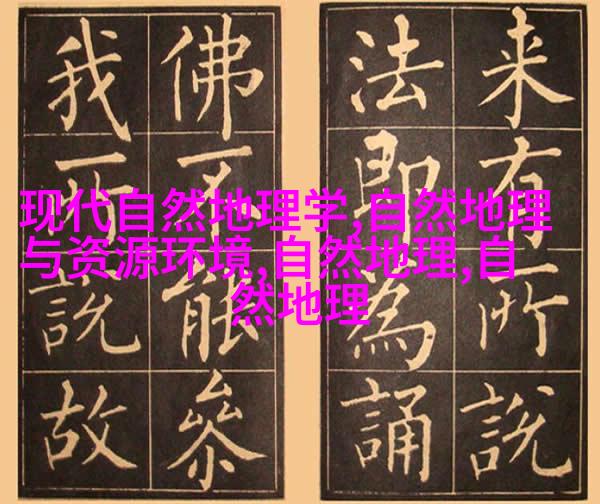 来有所說
法即為誦
佛不能參
我所說故
现代自然地理学,自然地理
与资源环境,自然地理,自
然地理